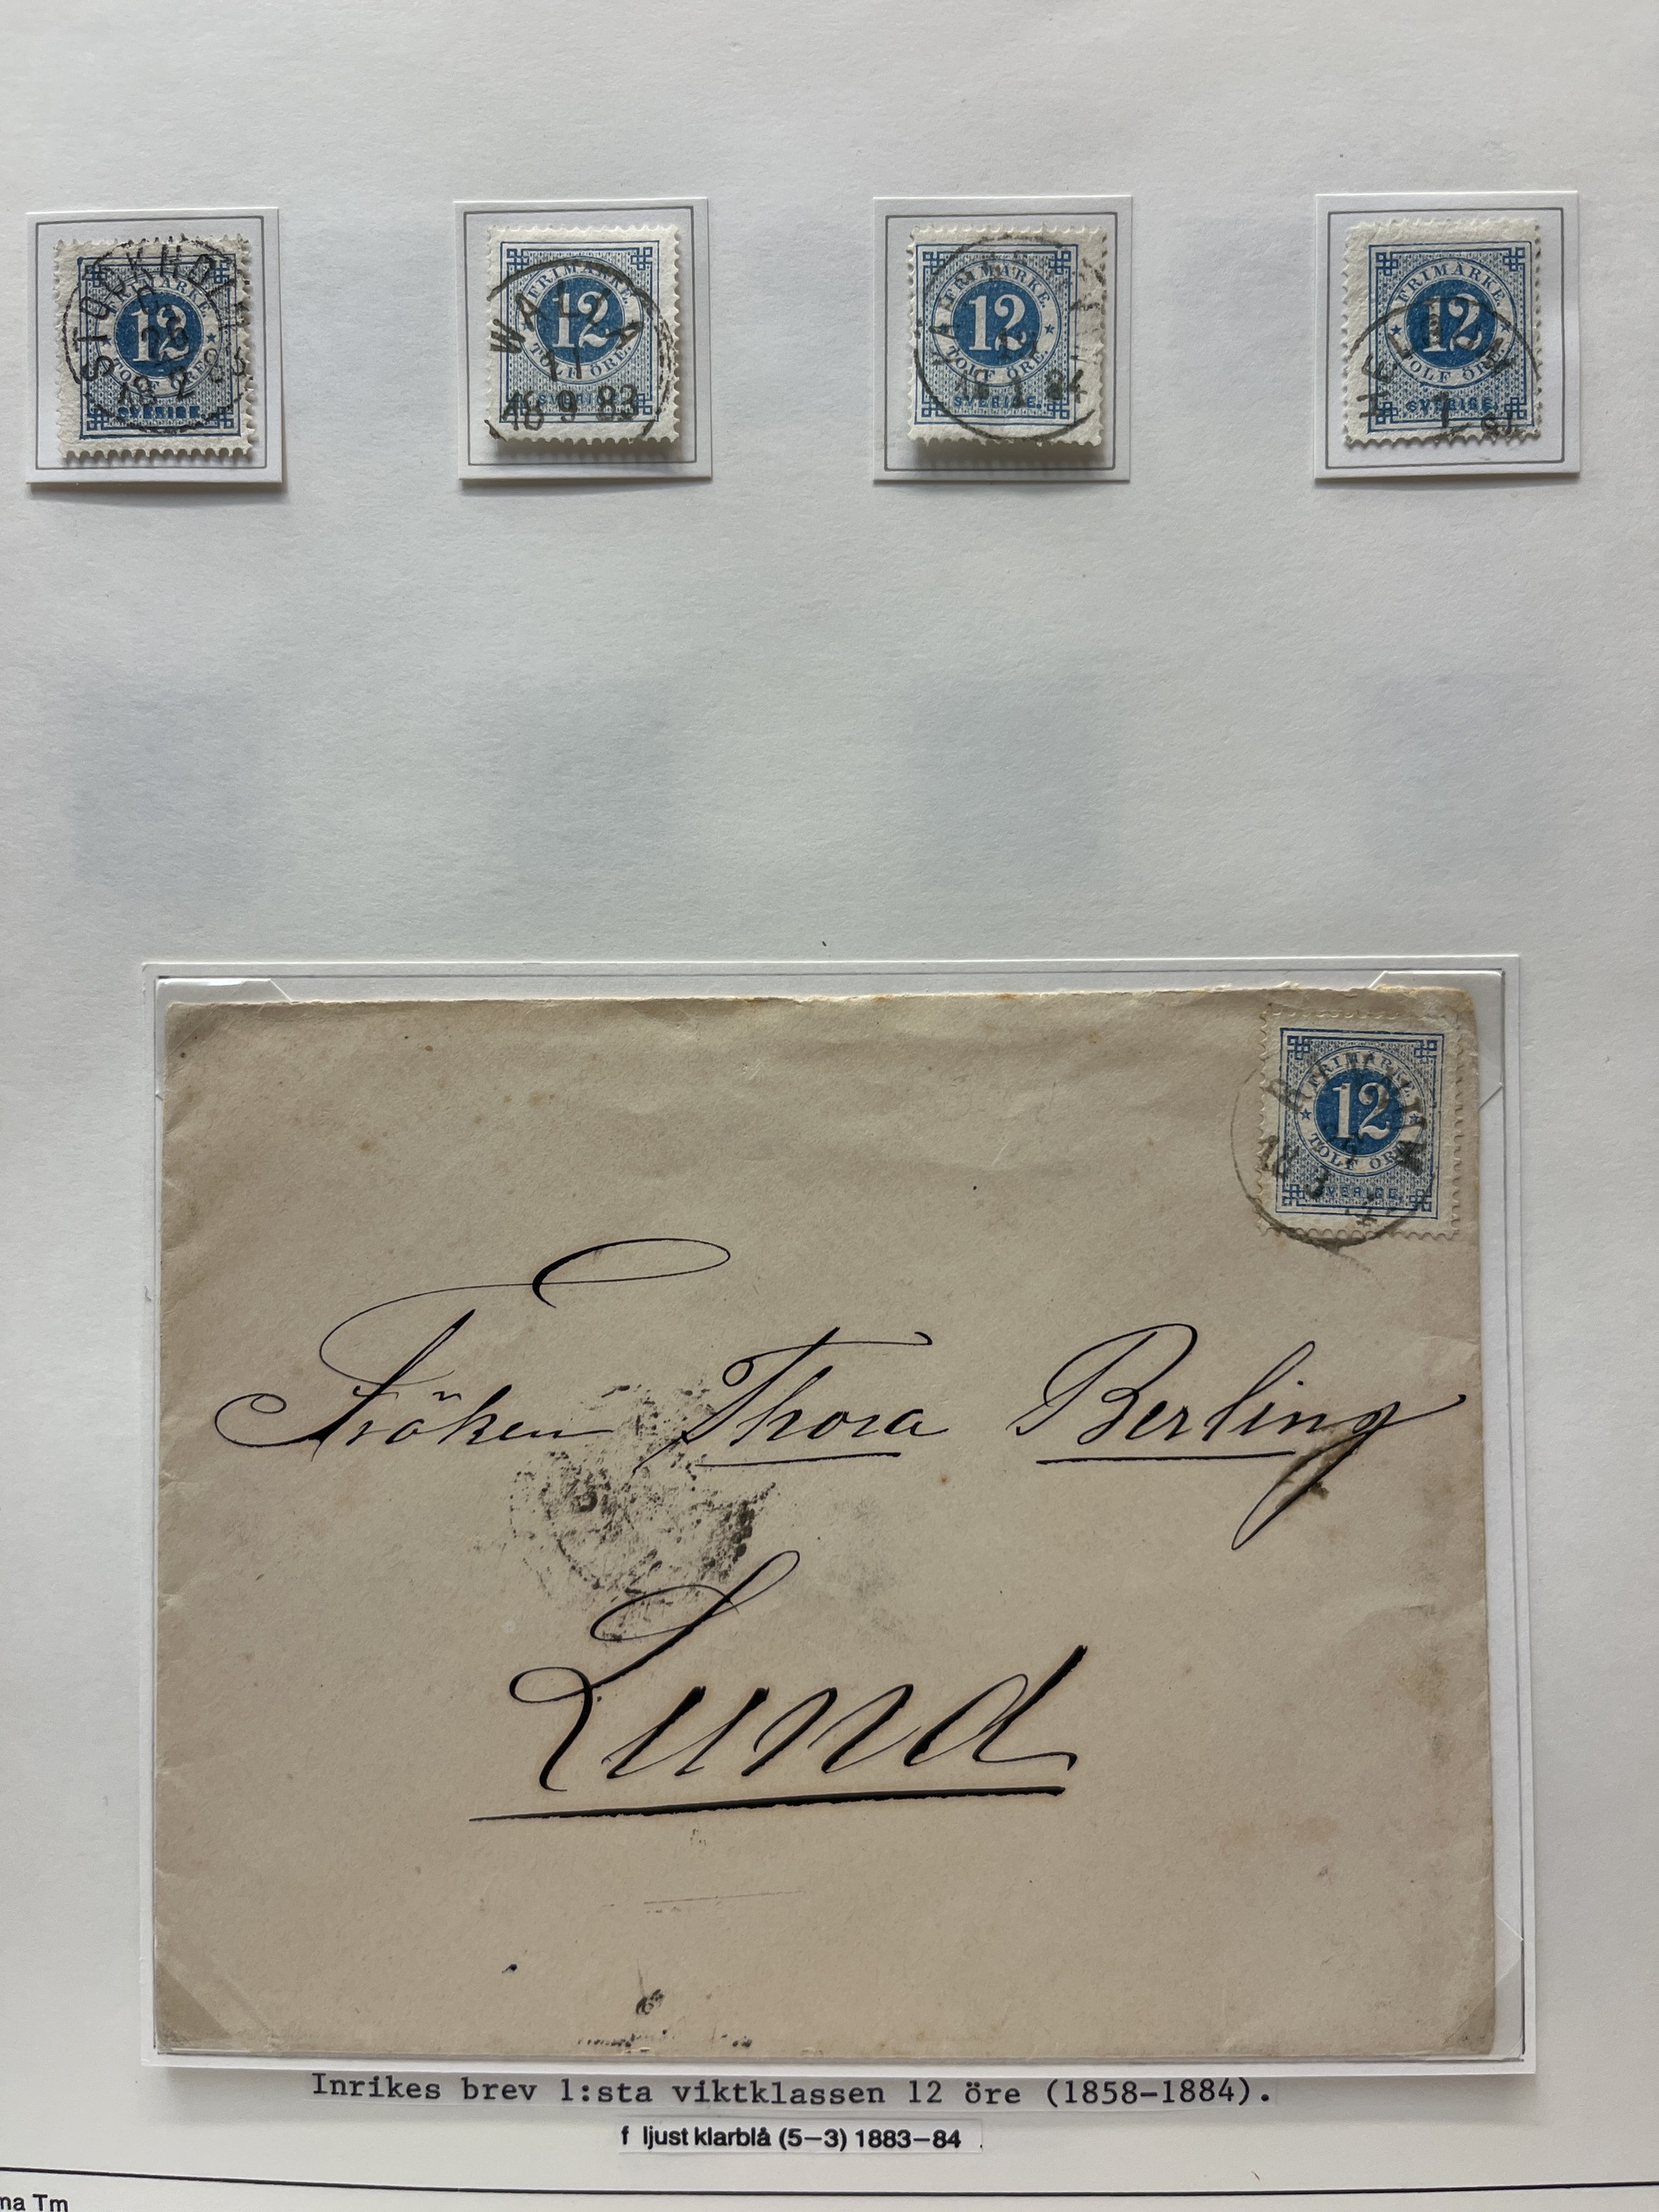 FRIMÄRKE
12
TOLF ÖRE
SVERIGE
STOCKHOLM
FRIMÄRKE
12
TOLF ÖRE
SVERIGE
WALLA
21
18 9 83
FRIMÄRKE
12
TOLF ÖRE
SVERIGE
FRIMÄRKE
12
TOLF ÖRE
SVERIGE
FRIMÄRKE
12
TOLF ÖRE
SVERIGE
Fröken Thora Berling
Lund
Inrikes brev 1:sta viktklassen 12 öre (1858-1884).
f ljust klarblå (5–3) 1883–84
ma Tm